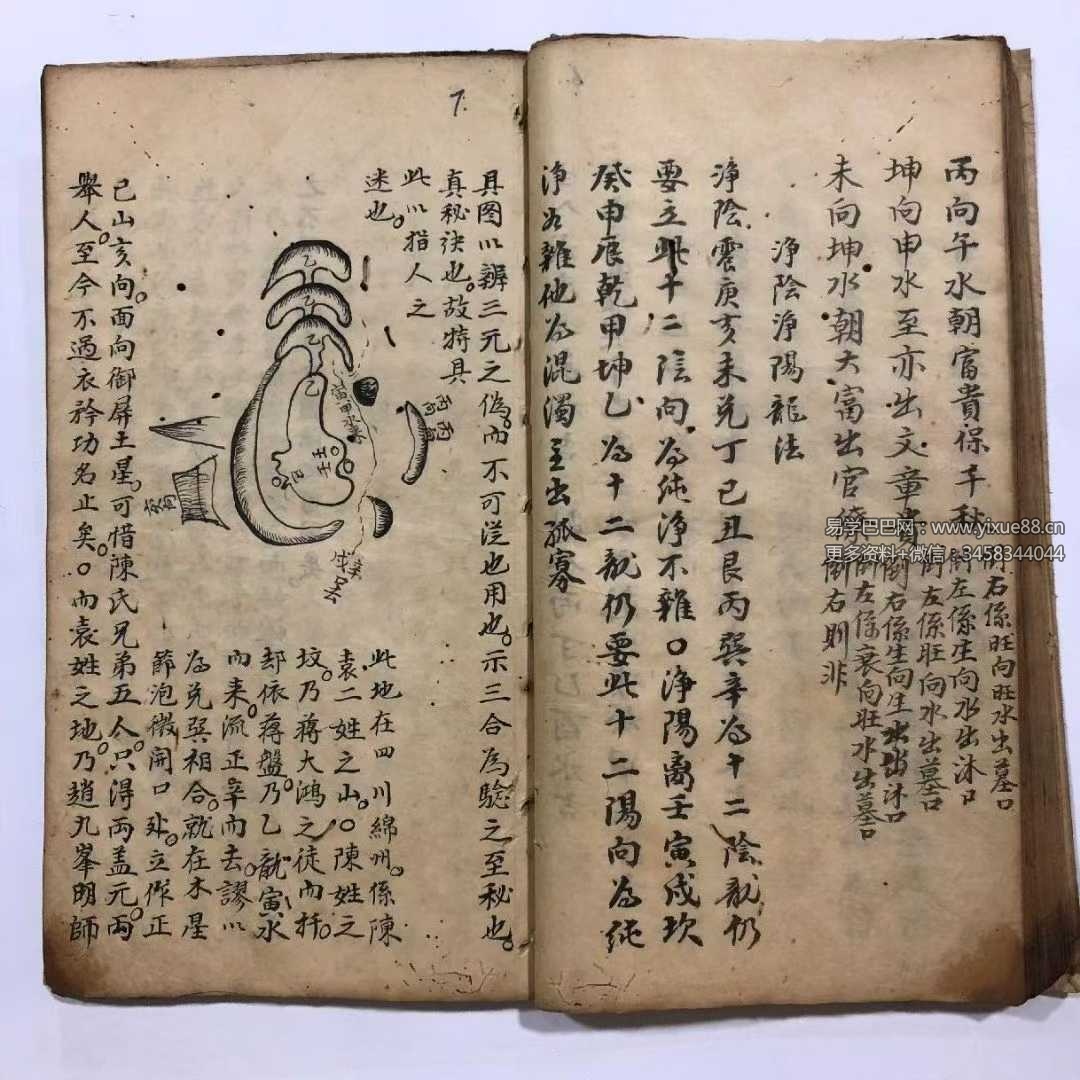 丙向午水朝富貴保千秋
倒右係旺向旺水出墓口
倒左係生向水出沐口
坤向申水至亦出文章貴
倒左係旺向水出墓口
倒右係生向生水出沐口
未向坤水朝大富出官僚
倒左係衰向旺水出墓口
倒右則非
淨陰淨陽龍法
淨陰震庚亥未兌丁巳丑艮丙巽辛為十二陰龍仍
要立此十二陰向為純淨不雜〇淨陽離壬寅戌坎
癸申辰乾甲坤乙為十二龍仍要此十二陽向為純
淨如雜他為混濁主出孤寡
7.
具图以辨三元之偽而不可從也用也示三合為驗之至秘也
真秘诀也故特具
此以指人之
迷也
乙
乙
乙
乙
寅甲水來
丙丙
壬
巳
辛
戌
此地在四川綿州係陳
袁二姓之山〇陳姓之
坟乃蔣大鴻之徒而扦
却依蔣盤乃乙龍寅水
而来流正辛而去謬以
為兌巽相合就在木星
節泡微開口处立作正
巳山亥向面向御屏土星可惜陳氏兄弟五人只得兩盖元兩
舉人至今不過衣衿功名止矣〇而袁姓之地乃趙九峯明師
易学巴巴网：www.yixue88.cn
更多资料+微信：3458344044